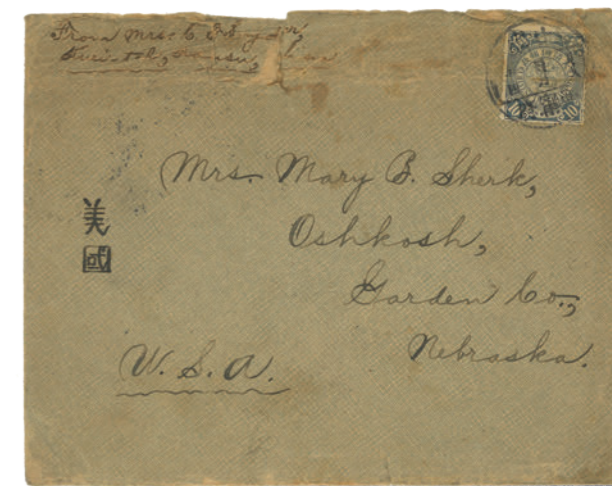 From Mrs. C.
Mrs. Mary B. Sherk,
Oshkosh,
Garden Co.,
Nebraska.
U. S. A.
美國
10